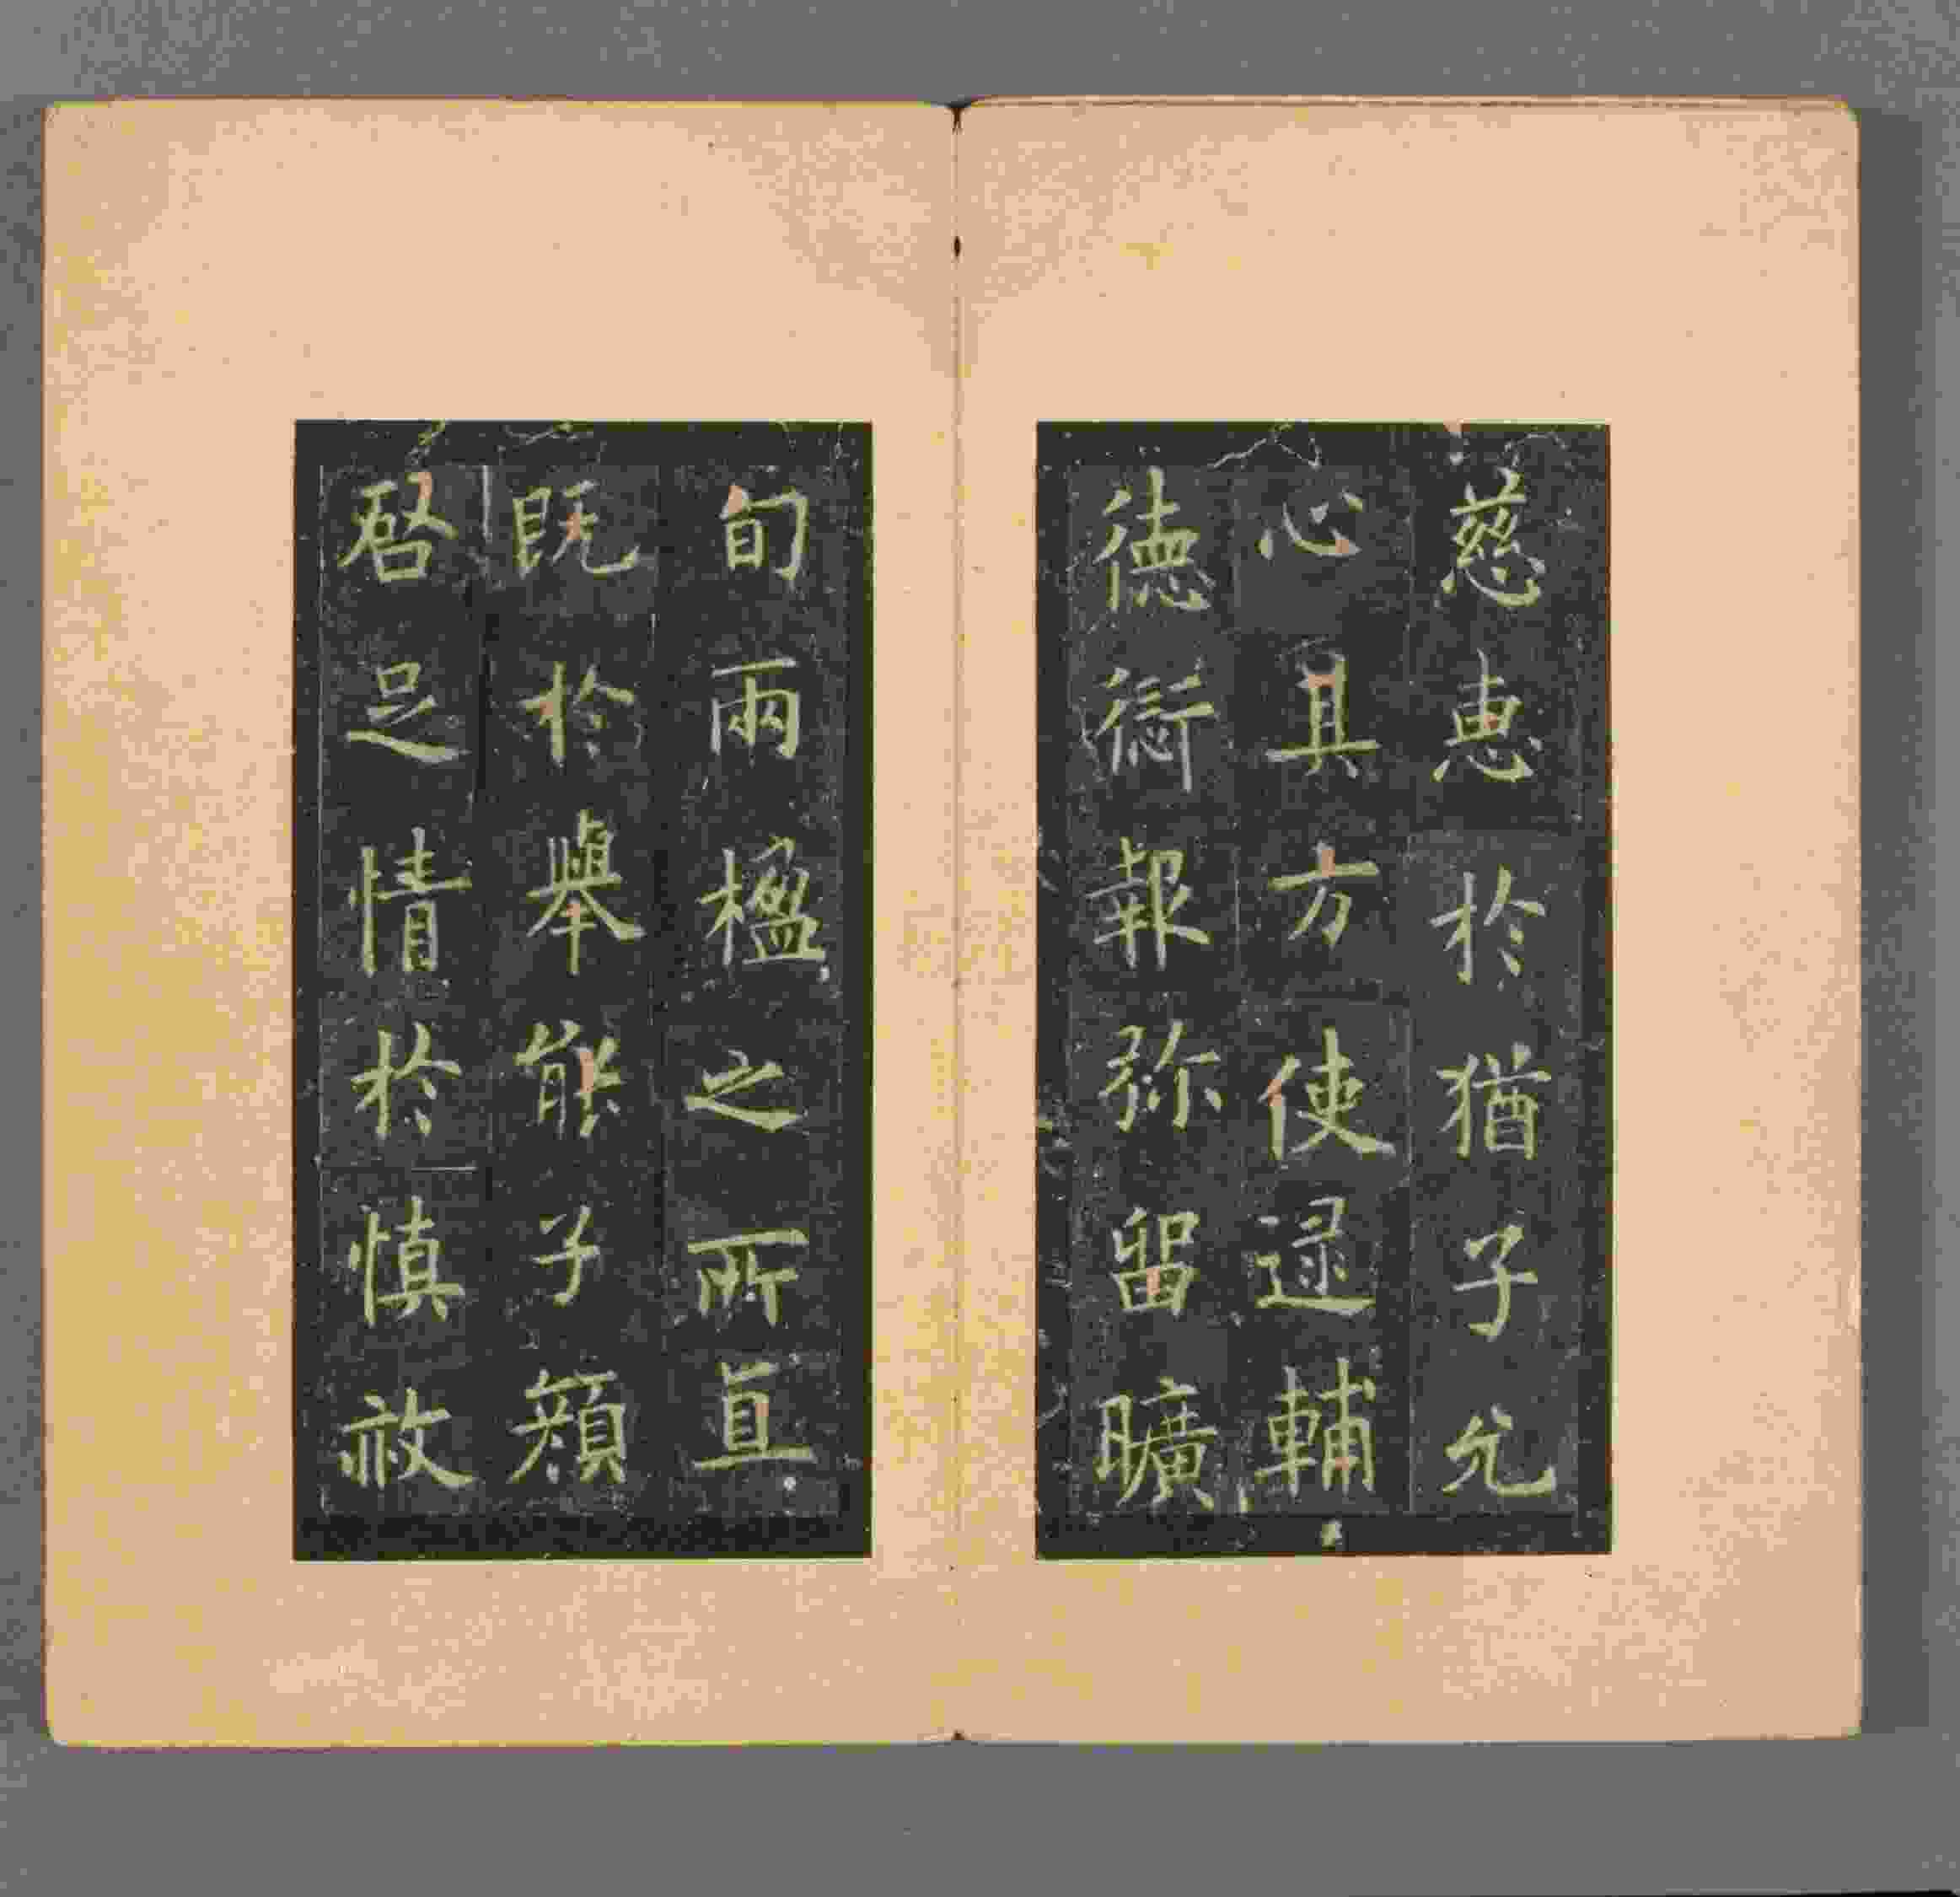 慈惠於猶子允
心具方使逯輔
德衒報弥留曠
旬兩楹之所真
既於舉能子顔
啓足情於慎赦